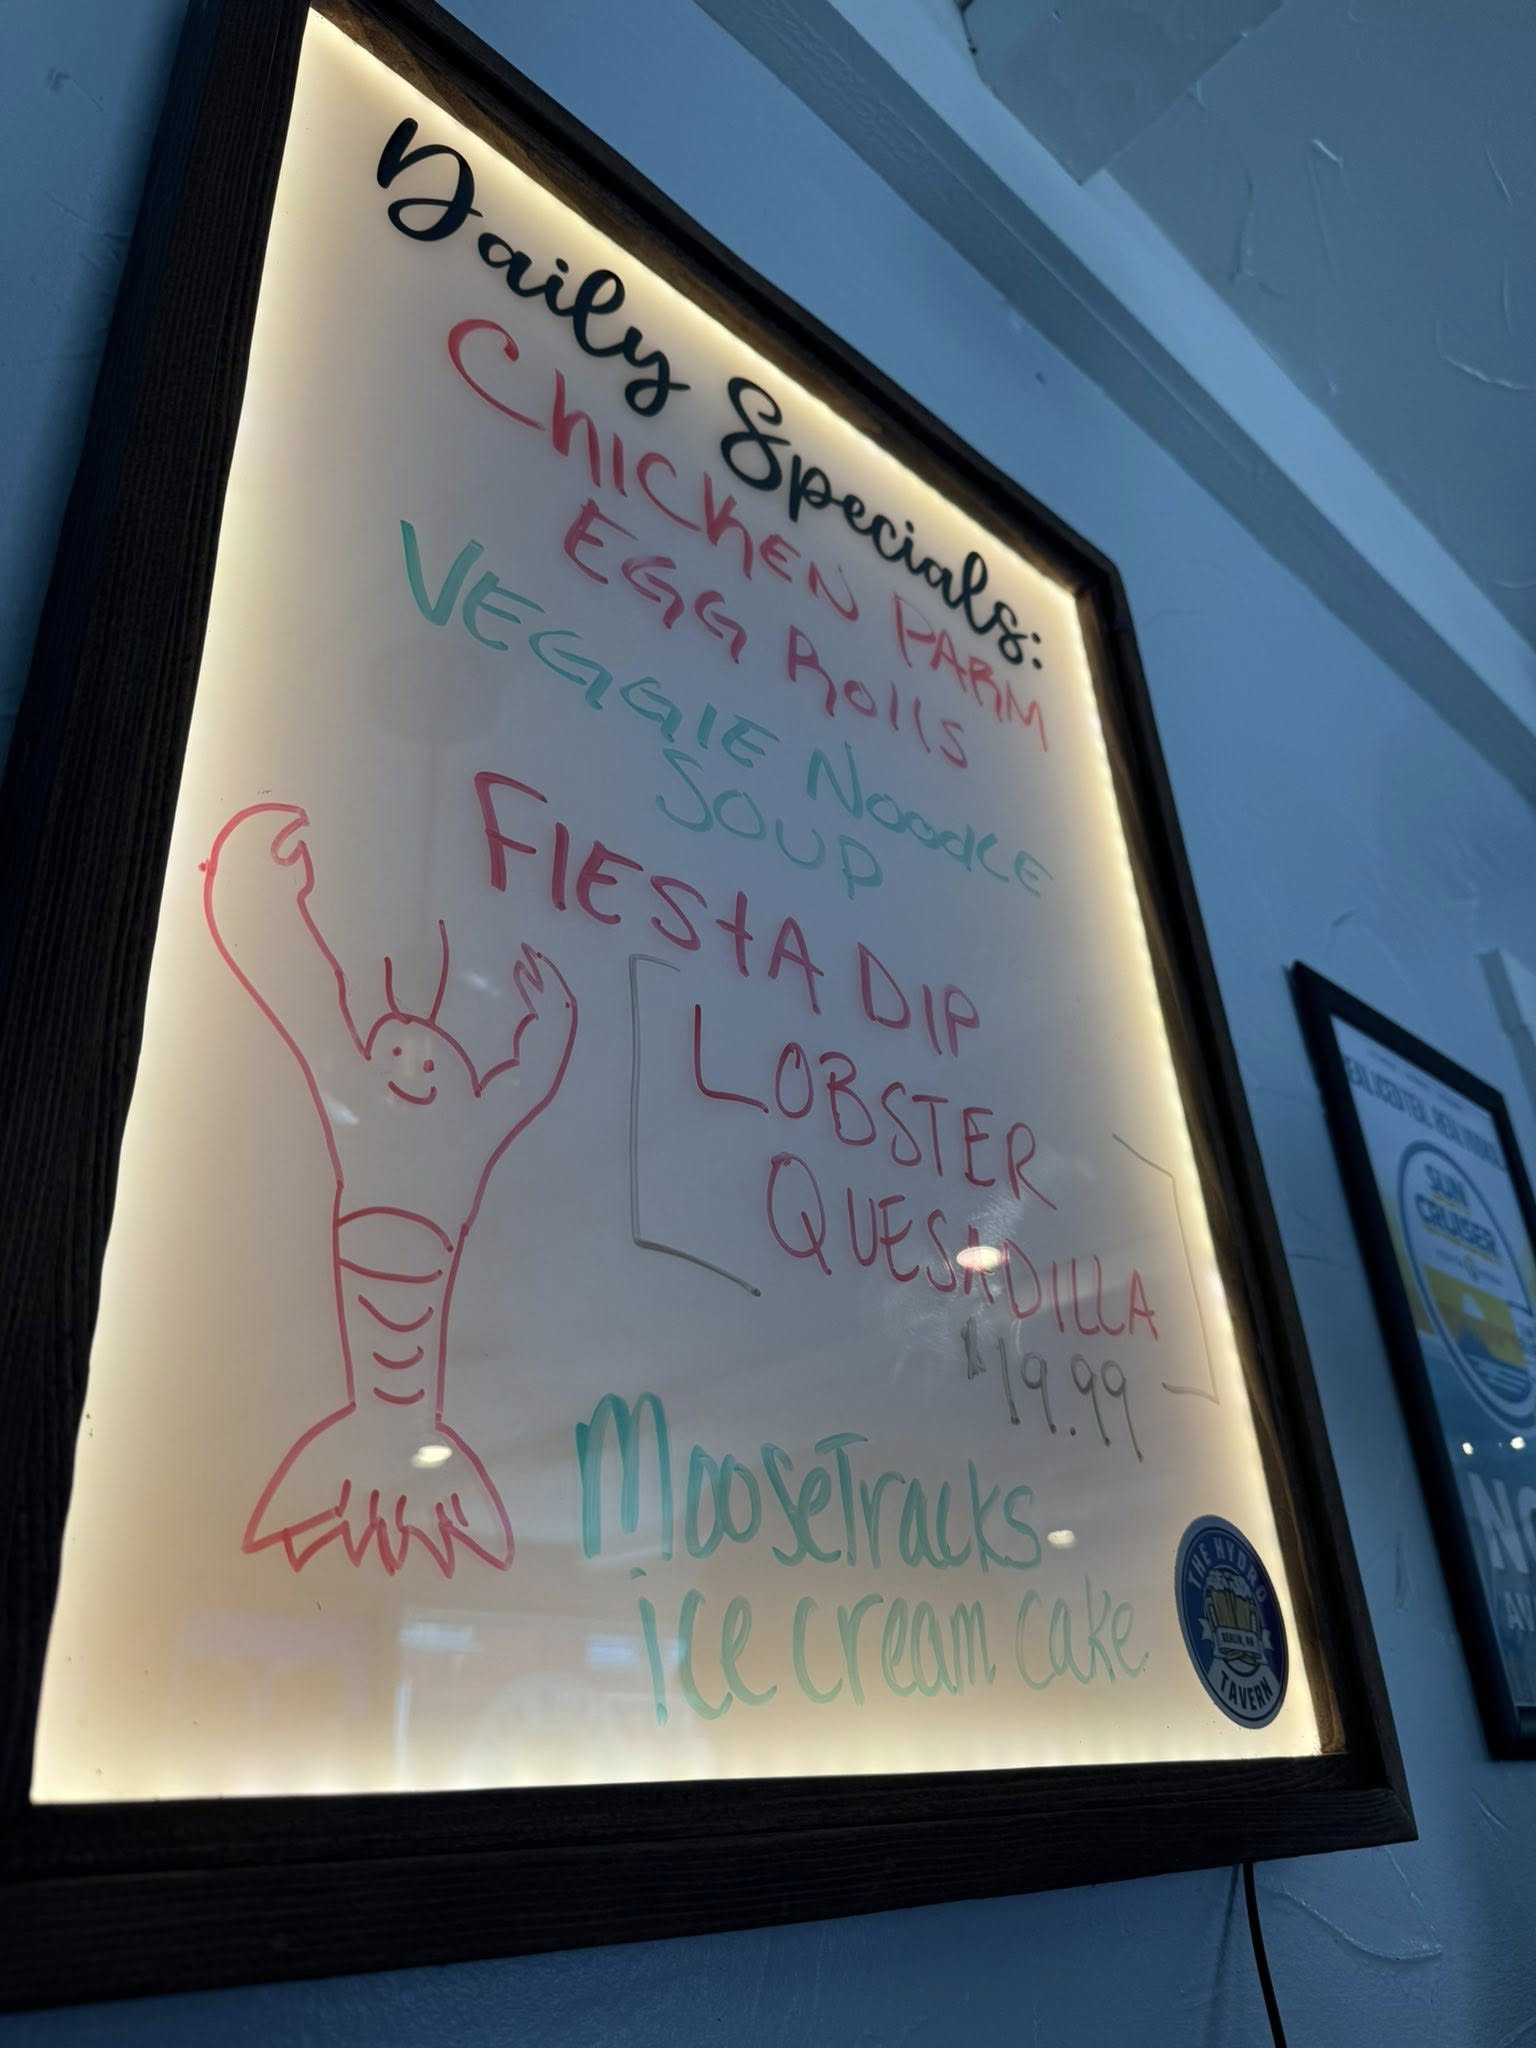 Daily Specials:
CHICKEN PARM
EGG Rolls
VEGGIE NOodLE
SOUP
FIEStA DIP
LOBSTER
QUESADILLA
$19.99
MooseTracks
ice cream cake
THE HYDRO
BERLIN, NH
TAVERN
SUN
CRUISER